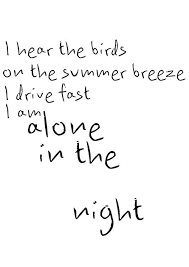 I hear the birds
on the summer breeze
I drive fast
I am
alone
in the
night